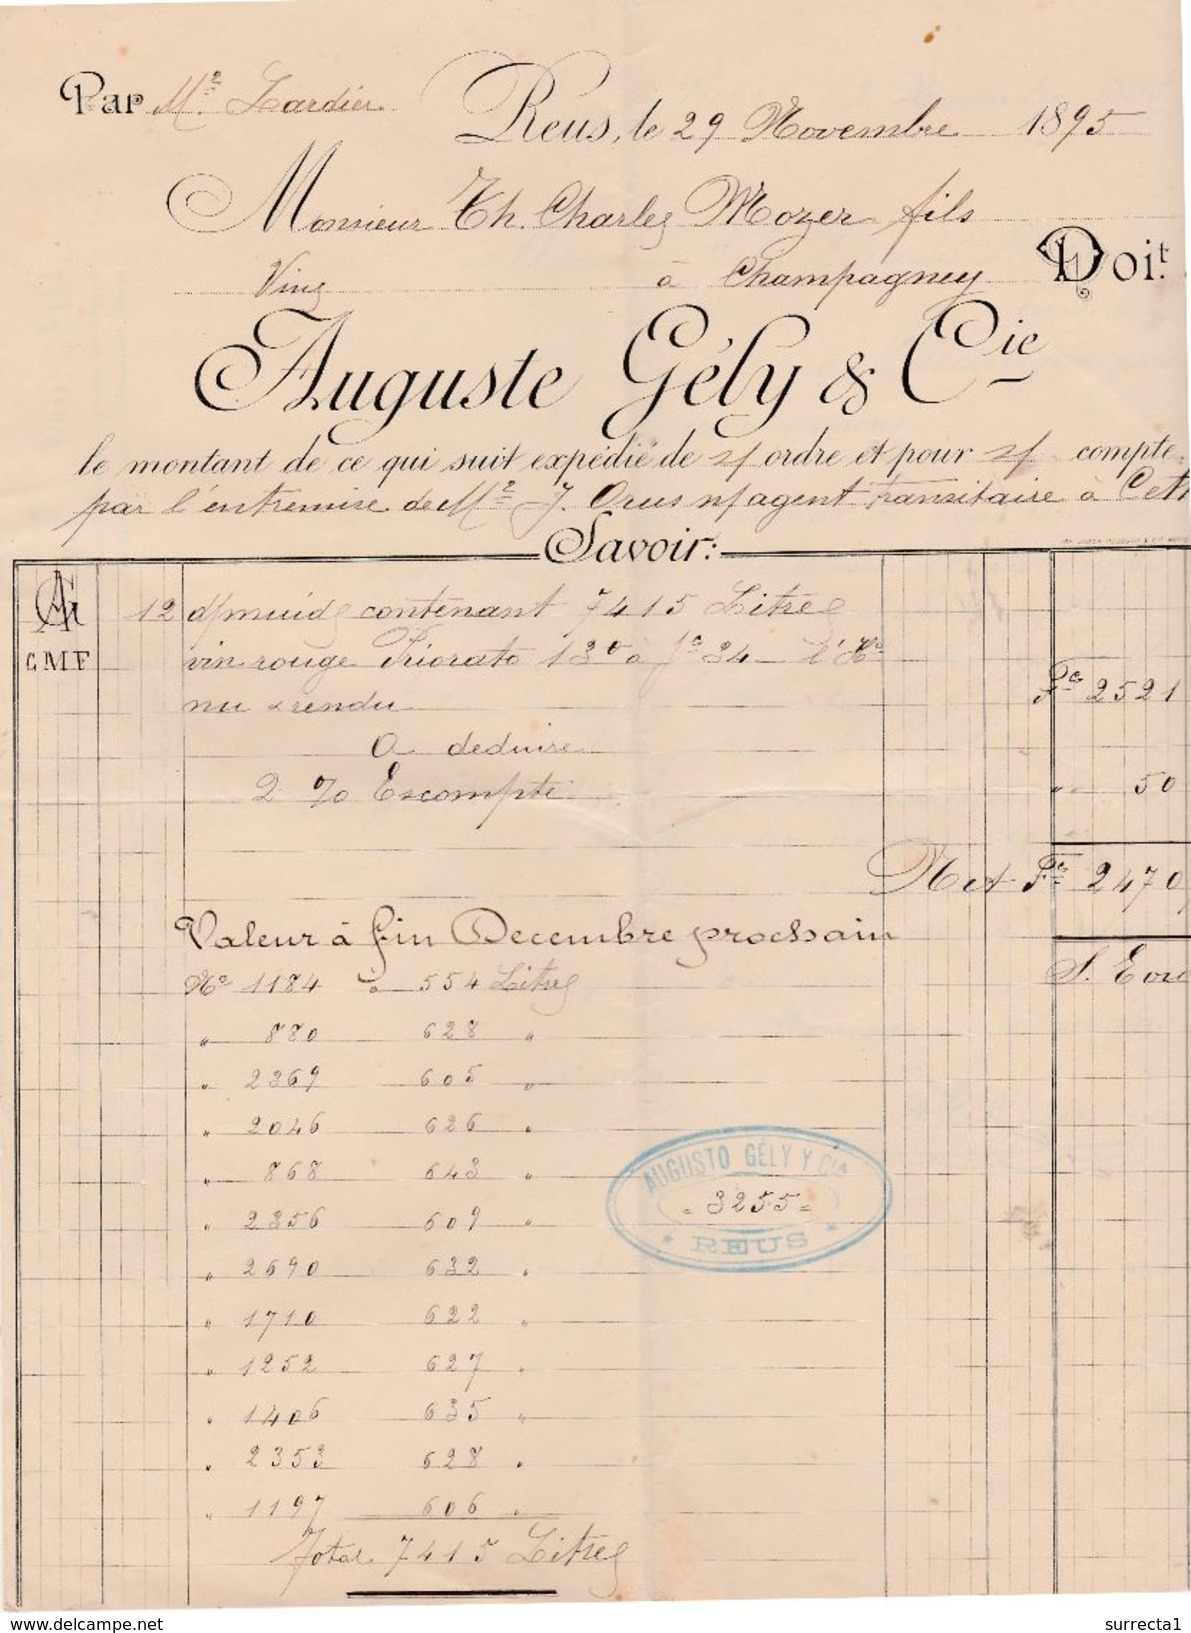 Par Mr. Lardier
Reus, le 29 Novembre 1895
Monsieur Th. Charles Mozer fils
Vins à Champagney Doit.
Auguste Gély & Cie
le montant de ce qui suit expédié de s/ ordre et pour s/ compte
par l'entremise de Mr J. Orus n/agent transitaire à Cett
Savoir:
AG
C.M.F 12 d/muids contenant 7415 Litres
vin rouge Priorato 13° à fcs 34 l'Ho
nu & rendu Fcs 2521
A deduire
2 % Escompte " 50
Net Fcs 2470
Valeur à fin Decembre prochain
S. E ou
No 1184 à 554 Litres
" 880 628 "
" 2369 605 "
" 2046 626 "
" 868 643 "
" 2356 609 "
" 2690 632 "
" 1710 622 "
" 1252 627 "
" 1406 635 "
" 2353 628 "
" 1197 606 "
Total 7415 Litres
AUGUSTO GÉLY Y Cia
3255
* REUS *
www.delcampe.net
surrecta1